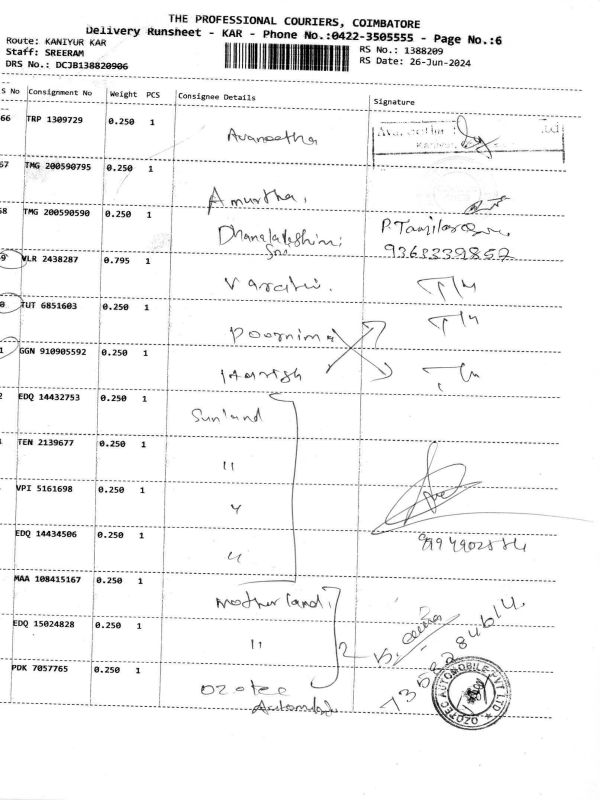 THE PROFESSIONAL COURIERS, COIMBATORE
Delivery Runsheet - KAR - Phone No.:0422-3505555 - Page No.:6
Route: KANIYUR KAR
Staff: SREERAM
DRS No.: DCJB138820906
RS No.: 1388209
RS Date: 26-Jun-2024
S No Consignment No Weight PCS Consignee Details Signature
66 TRP 1309729 0.250 1
67 TMG 200590795 0.250 1 Amurtha,
68 TMG 200590590 0.250 1 P. Tamilarasan
9 VLR 2438287 0.795 1
0 TUT 6851603 0.250 1 Poornima
1 GGN 910905592 0.250 1 Harish
2 EDQ 14432753 0.250 1 Sunland
TEN 2139677 0.250 1 "
VPI 5161698 0.250 1 "
EDQ 14434506 0.250 1 "
MAA 108415167 0.250 1 Motherland,
EDQ 15024828 0.250 1 "
PDK 7057765 0.250 1 Ozotec
OZOTEC AUTOMOBILE PVT LTD